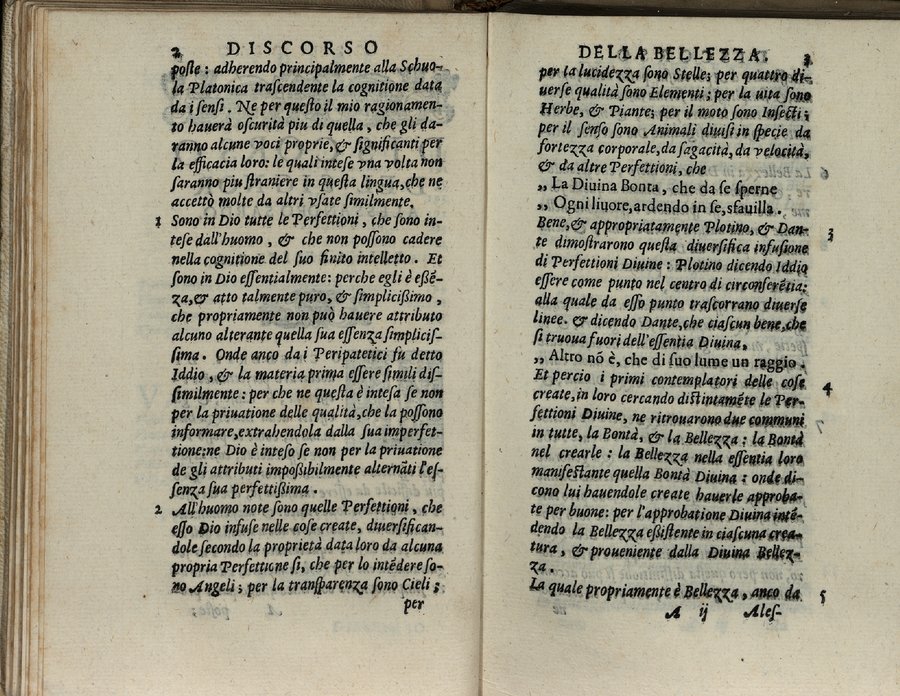 2 DISCORSO
poste : adherendo principalmente alla Schuo-
la Platonica trascendente la cognitione data
da i sensi . Ne per questo il mio ragionamen-
to hauerà oscurità piu di quella , che gli da-
ranno alcune voci proprie, & significanti per
la efficacia loro: le quali intese vna volta non
saranno piu straniere in questa lingua,che ne
accettò molte da altri vsate similmente.
1 Sono in Dio tutte le Perfettioni, che sono in-
tese dall'huomo , & che non possono cadere
nella cognitione del suo finito intelletto . Et
sono in Dio essentialmente: perche egli è essē-
za,& atto talmente puro, & simplicissimo ,
che propriamente non può hauere attributo
alcuno alterante quella sua essenza simplicis-
sima . Onde anco da i Peripatetici fu detto
Iddio, & la materia prima essere simili dis-
similmente : per che ne questa è intesa se non
per la priuatione delle qualità,che la possono
informare,extrahendola dalla sua imperfet-
tione:ne Dio è inteso se non per la priuatione
de gli attributi impossibilmente alternāti l'es-
senza sua perfettissima .
2 All'huomo note sono quelle Perfettioni , che
esso Dio infuse nelle cose create, diuersifican-
dole secondo la proprietà data loro da alcuna
propria Perfettione si, che per lo intēdere so-
no Angeli ; per la transparenza sono Cieli ;
per
DELLA BELLEZZA. 3
per la lucidezza sono Stelle; per quattro di-
uerse qualità sono Elementi ; per la uita sono
Herbe, & Piante; per il moto sono Insecti ;
per il senso sono Animali diuisi in specie da
fortezza corporale,da sagacità, da velocità,
& da altre Perfettioni, che
„ La Diuina Bonta , che da se sperne
„ Ogni liuore,ardendo in se,sfauilla .
Bene,& appropriatamente Plotino, & Dan- 3
te dimostrarono questa diuersifica infusione
di Perfettioni Diuine : Plotino dicendo Iddio
essere come punto nel centro di circonferētia:
alla quale da esso punto trascorrano diuerse
linee. & dicendo Dante,che ciascun bene,che
si truoua fuori dell'essentia Diuina,
„ Altro nō è, che di suo lume un raggio .
Et percio i primi contemplatori delle cose 4
create,in loro cercando distintamēte le Per-
fettioni Diuine, ne ritrouarono due communi
in tutte, la Bontà, & la Bellezza : la Bontà
nel crearle : la Bellezza nella essentia loro
manifestante quella Bontà Diuina : onde di-
cono lui hauendole create hauerle approba-
te per buone: per l'approbatione Diuina intē-
dendo la Bellezza essistente in ciascuna crea-
tura , & proueniente dalla Diuina Bellez-
za .
La quale propriamente è Bellezza , anco da 5
A ij Ales-